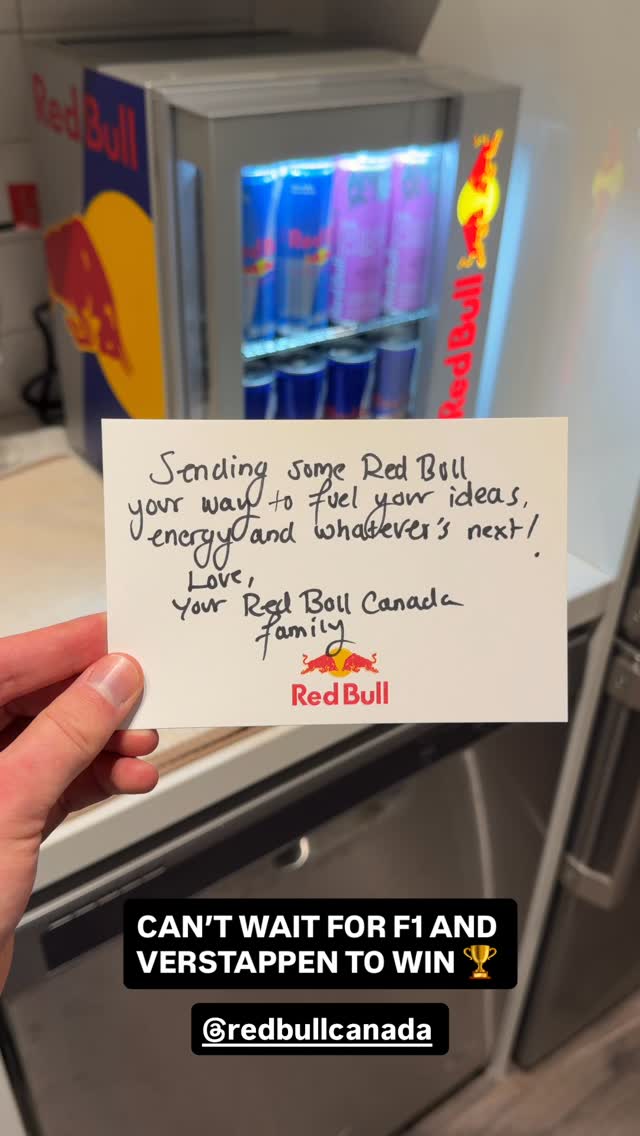 Red Bull
Red Bull
Red Bull
Sending some Red Bull
your way to fuel your ideas,
energy and whatever's next!
Love,
Your Red Bull Canada
family
Red Bull
CAN'T WAIT FOR F1 AND
VERSTAPPEN TO WIN 🏆
@redbullcanada